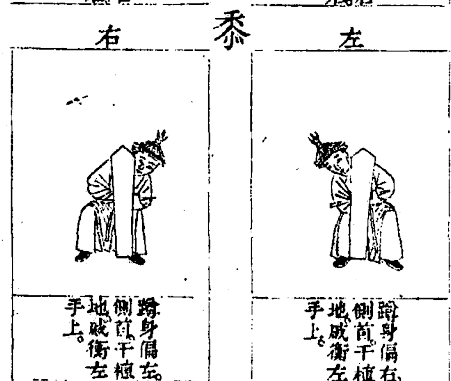 黍
左
蹲身偏右
側首、干植
地、戚衡左
手上。
右
蹲身偏左。
側首、干植
地、戚衡左
手上。